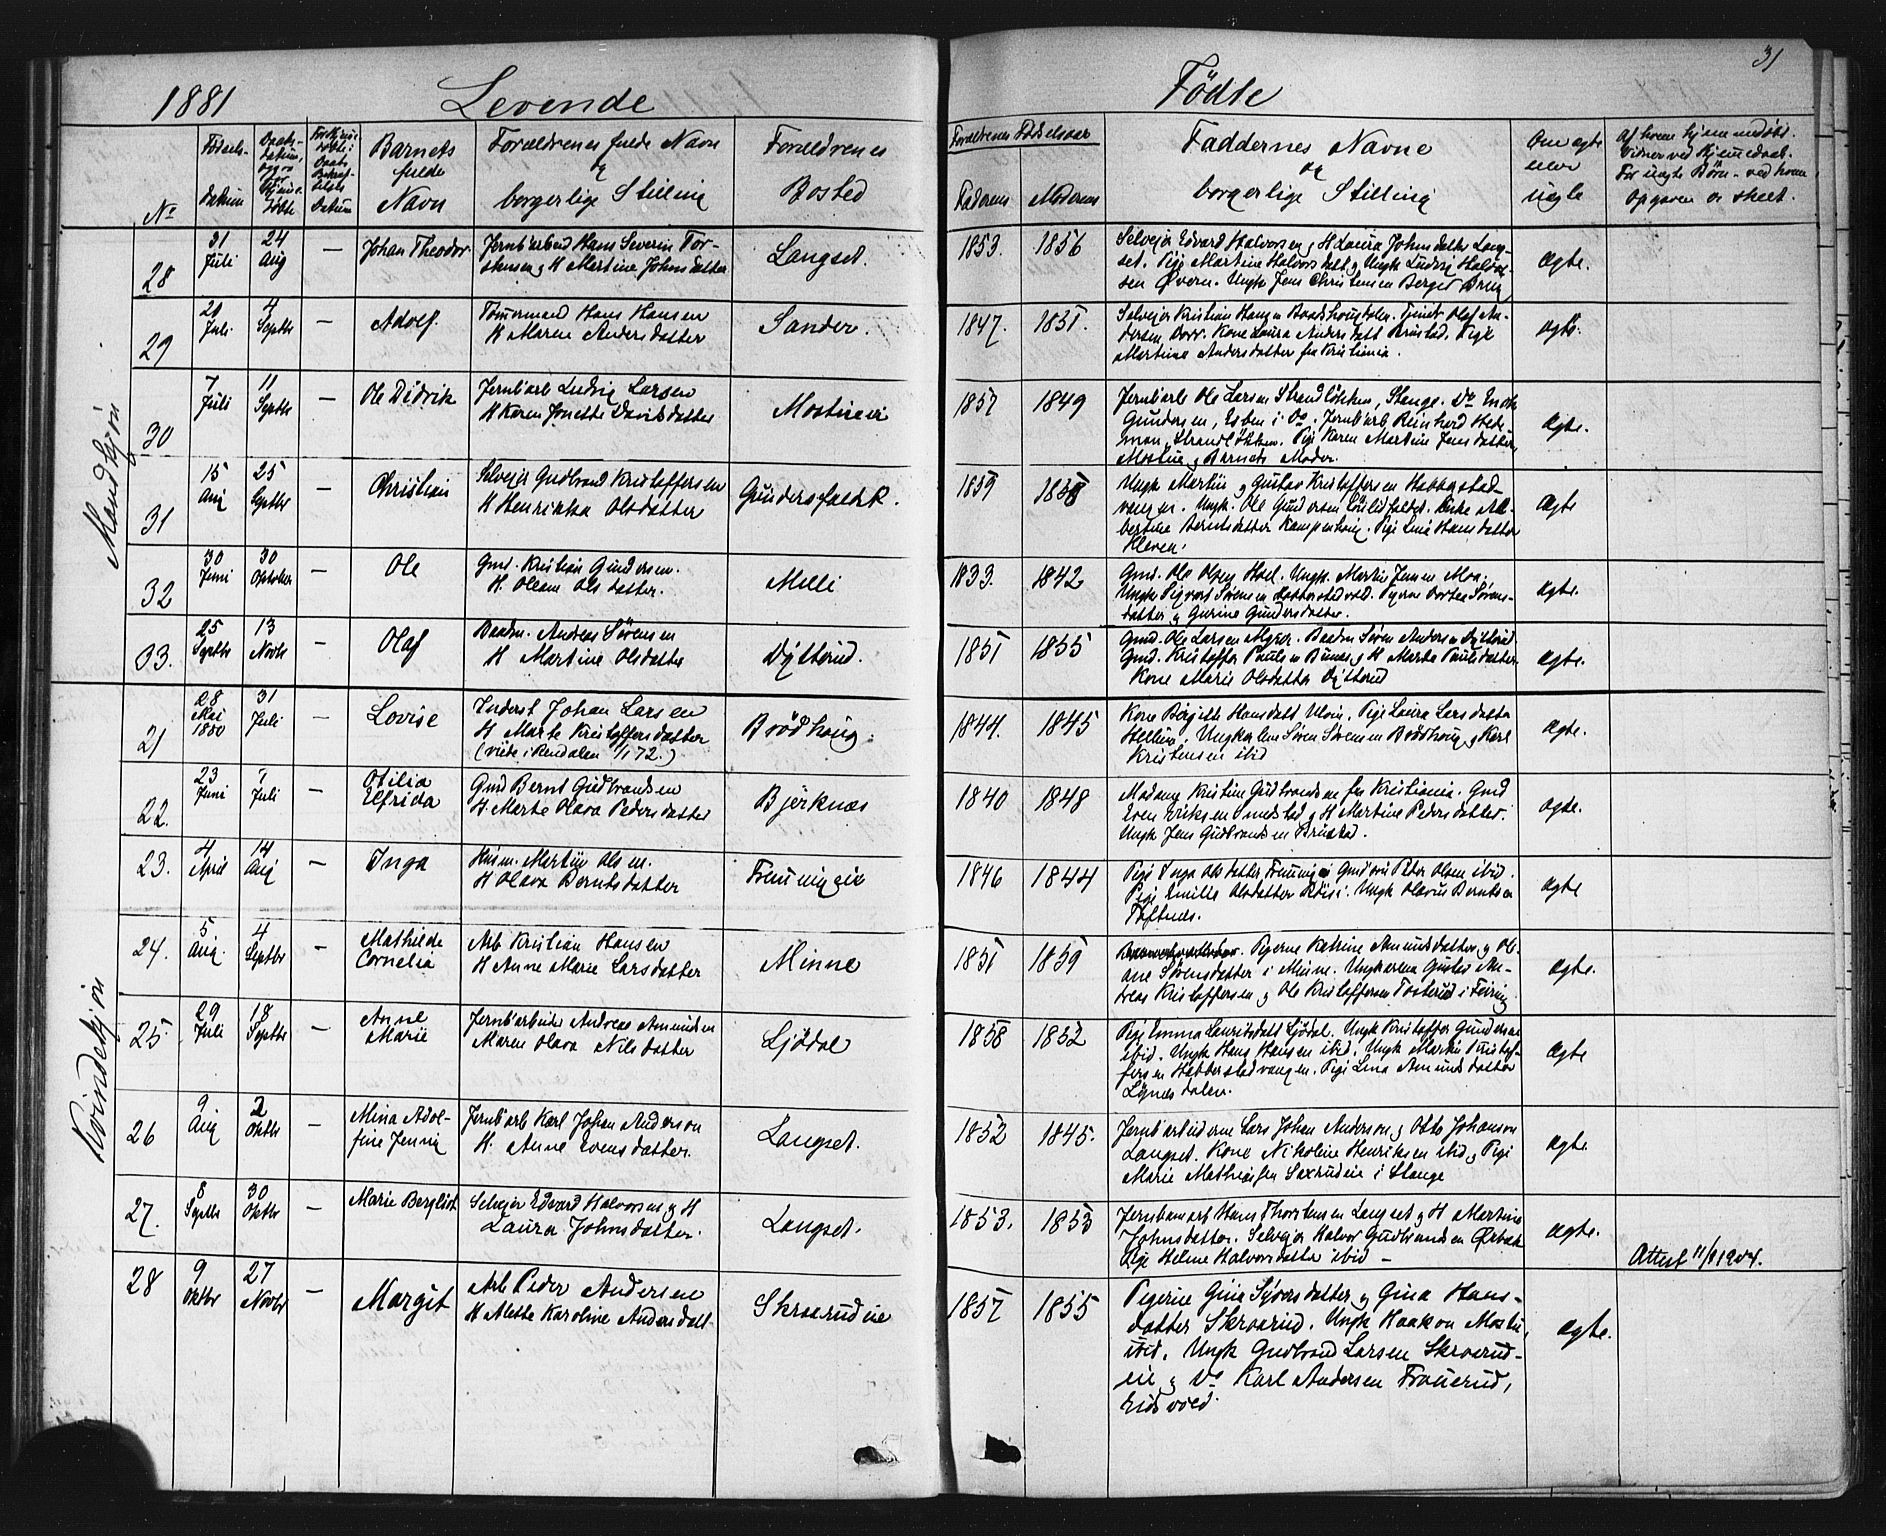 31
1881 Levende Födte
No
Födsels-
Datum
Daabs-
Datum,
Barnets
fulde
Navn
Forældrenes fulde Navn
og
borgerlige Stilling
Forældrenes
Bosted
Forældrenes Födselsaar
Faderens Moderens
Faddernes Navne
og
borgerlige Stilling
Om ægte
eller
uægte
Af hvem hjemmedöbt.
Vidner ved Hjemmedaab.
For uægte Börn - ved hvem
Opgaven er skeet.
Mandkjön
28
31
Juli
24
Aug
—
Johan Theodor
Jernb'arbeid Hans Severin Tor-
stensen og H Martine Johnsdatter
Langset.
1853. 1856
Selvejer Edvard Halvorsen og H Laura Johnsdatter Lang-
set. Pige Martine Halvorsdatt og Ungk Ludvig Halvor-
sen Øvern. Ungk Jens Christensen Berger
ægte.
29
20
Juli
4
Septbr
—
Adolf.
Tömmermand Hans Hansen
H Maren Andersdatter
Sander.
1847. 1851.
Selvejer Kristian Hansen Tjener Olaf An-
dersen Dorr. Kone Laura Andersdatt Brustad. Pige
Martine Andersdatter fra Kristiania.
ægte.
30
7
Juli
11
Septbr
—
Ole Didrik
Jernb'arb Ludvig Larsen
H Karen Jonette Davidsdatter
Mostueeie
1857 1849
Jernb'arb Ole Larsen Strandlökken, Stange. Do
Gundersen, Esben i Do, Jernb'arb Reinhard Hede-
man, Strandlökken. Pige Karen Martine Jensdatter,
Mostue og Barnets Moder.
ægte.
31
15
Aug
25
Septbr
—
Christian
Selvejer Gudbrand Kristoffersen
H Henrikka Olsdatter
Gundersfaldet.
1859 1858
Ungk Martin og Gustav Kristoffersen Habberstad-
vangen. Ungk. Ole Gundersen Enke Al-
bertine Berntsdatter Kampenhaug. Pige Lina Hansdatter
Kleven.
ægte
32
30
Juni
30
Oktober
—
Ole
Gmd. Kristian Gundersen.
H. Oleane Olsdatter.
Melli
1833. 1842
Gmd. Ole Olsen Hoel. Ungk. Martin Jensen Moa,
Ungk Sigvart Sörensen Pigerne Dortea Sörens-
datter og Gurine Gundersdatter.
ægte.
33.
25
Septbr
13
Novbr
Olaf
Baadm. Andreas Sörensen
H Martine Olsdatter
Dytterud.
1851 1855
Gmd. Ole Larsen Myrer. Baadm Sören Andersen Dytterud
Gmd. Kristoffer Paulsen Bunes og H Marte Paulsdatter.
Kone Marie Olsdatter Dytterud
ægte.
Kvindekjön
21
28
Mai
1880
31
Juli
—
Lovise
Inderst Johan Larsen
H Marte Kristoffersdatter
(viede i Rendalen 1/1 72.)
Brödhaug.
1844. 1845
Kone Birgitte Hansdatt Ulvin. Pige Laura Larsdatter
Ungkarlene Sören Sörensen Brödhaug og Karl
Kristensen ibid
ægte.
22.
23
Juni
Juli
—
Otilia
Elfrida
Gmd Bernt Gudbrandsen
H. Marte Olava Pedersdatter
Bjerknæs
1840 1848
Madame Kristine Gudbrandsen fra Kristiania. Gmd
Even Eriksen og H Martine Pedersdatter.
Ungk Jens Gudbrandsen Brustad.
ægte.
23.
4
April
14
Aug
—
Inga
Husm. Martin Olsen.
H Olava Berntsdatter
1846 1844
Pige Inga Olsdatter Peter Olsen ibid.
Pige Emilie Olsdatter Röisi. Ungk Olaus Berntsen
Toftnes.
ægte
24.
5
Aug.
4
Septbr
—
Mathilde
Cornelia
Arb Kristian Hansen
H Anne Marie Larsdatter
Minne
1851 1859
Pigerne Katrine Amundsdatter og Ol-
ane Sörensdatter i Minne. Ungkarlene Gustav An-
dreas Kristoffersen og Ole Kristoffersen Tosterud i Feiring
ægte.
25
29
Juli
18
Septbr
—
Anne
Marie
Jernb'arbeider Andreas Amundsen
Maren Olava Nilsdatter
Ljödal
1858 1852
Pige Emma Lauritsdatt Ljödal. Ungk Kristoffer Gundersen
ibid. Ungk Hans Hansen ibid. Ungk Martin Kristof-
fersen Habberstadvangen. Pige Lina Amundsdatter
Lynesdalen.
ægte
26
9
Aug
2
Oktbr
—
Mina Adol-
fine Jenny
Jernb'arb Karl Johan Anderson
H. Anne Evensdatter.
Langset.
1852 1845.
Jernb'arbeiderne Lars Johan Anderson og Otto Johanson
Langset. Kone Nikoline Henriksen ibid og Pige
Marie Mathiasen Saxrudeie i Stange
ægte.
27.
8
Septbr
30
Oktbr
—
Marie Bergliot
Selvejer Edvard Halvorsen og H
Laura Johnsdatter.
Langset.
1853. 1853
Jernbanearb Hans Thorstensen Langset og H Martine
Johnsdatter. Selvejer Halvor Gudbrandsen Örbæk
Pige Helene Halvorsdatter ibid —
ægte.
Attest 11/8 1904.
28
9
Oktbr
27
Novbr
—
Margit
Arb Peder Andersen
H Mette Karoline Andersdatt.
Skraarudeie
1857 1855
Pigerne Gina Syversdatter og Gina Hans-
datter Skraarud. Ungk Haakon Mostu,
ibid. Ungk Gudbrand Larsen Skraarud-
eie og Do Karl Andersen Trauerud,
Eidsvold.
ægte.